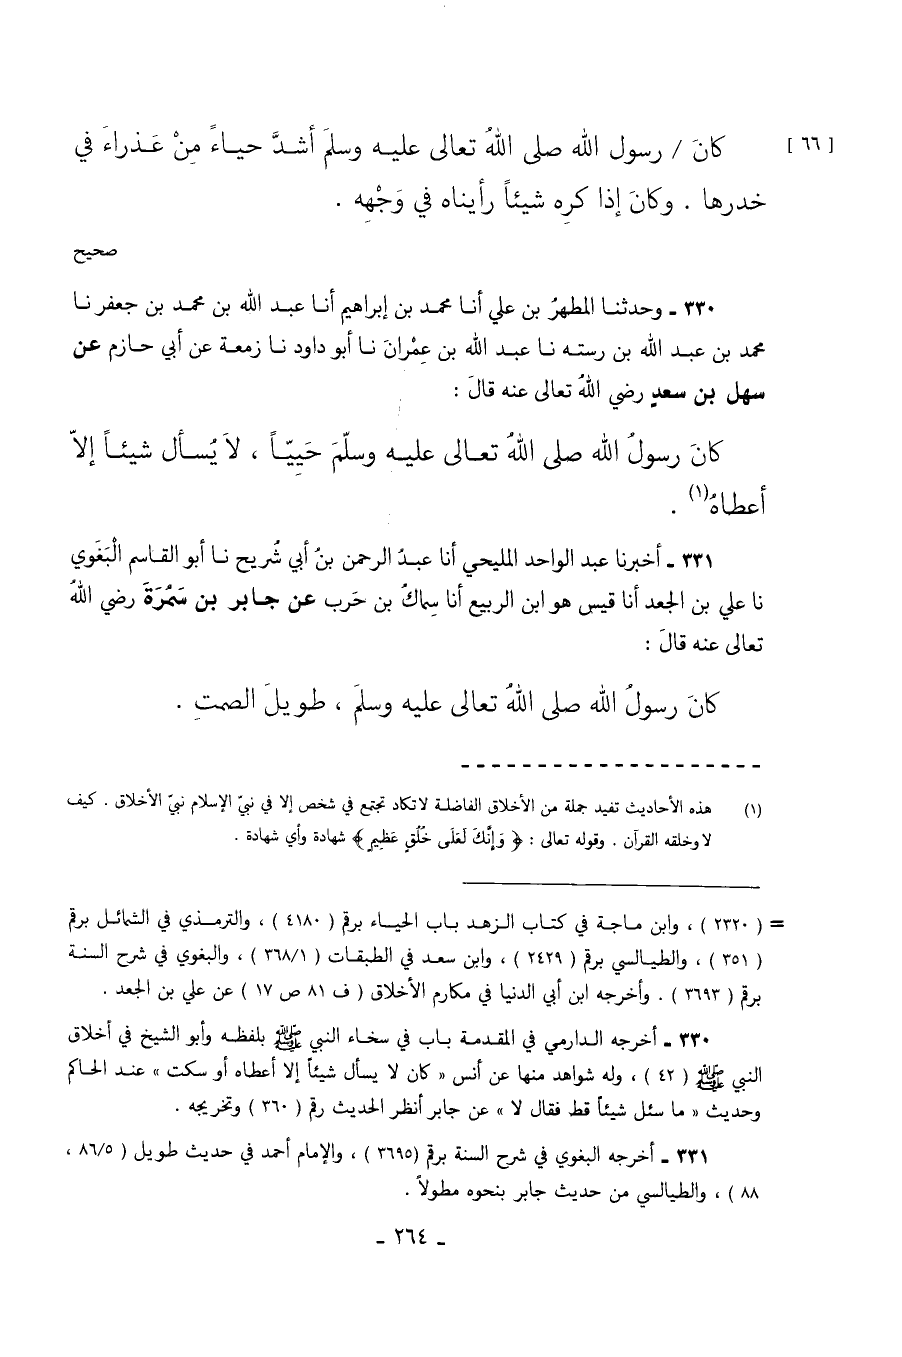 [ ٦٦ ] كانَ / رسول الله صلى اللهُ تعالى عليـه وسلمَ أشـدَّ حيـاءً مِنْ عَـذراءَ في
خدرها . وكانَ إذا كره شيئاً رأيناه في وَجْهِه .
صحيح
٣٣٠ ـ وحدثنـا المطهرُ بن علي أنـا محمـد بن إبراهيم أنـا عبـد الله بن محمـد بن جعفر نـا
محمد بن عبـد الله بن رستـه نـا عبـد الله بن عِمْرانَ نـا أبو داود نـا زمعـة عن أبي حـازم عن
سهل بن سعدٍ رضي اللهُ تعالى عنه قالَ :
كانَ رسولُ الله صلى اللهُ تعـالى عليـه وسلّمَ حَيِيّـاً ، لاَ يُسـأل شيئـاً إلاّ
أعطاهُ(١) .
٣٣١ ـ أخبرنا عبد الواحد المليحي أنا عبـدُ الرحمن بنُ أبي شُريح نـا أبو القـاسم الْبَغَوي
نا علي بن الجعد أنا قيس هو ابن الربيع أنا سِماكُ بن حَرب عن جـابر بن سَمُرَةَ رضي اللهُ
تعالى عنه قالَ :
كانَ رسولُ الله صلى اللهُ تعالى عليه وسلمَ ، طويلَ الصمتِ .
(١) هذه الأحاديث تفيد جملة من الأخلاق الفاضلة لاتكاد تجتمع في شخص إلا في نبيّ الإسلام نبيّ الأخلاق . كيف
لا وخلقه القرآن . وقوله تعالى : ﴿ وَإِنَّكَ لَعَلَى خُلُقٍ عَظِيمٍ ﴾ شهادة وأي شهادة .
= ( ٢٣٢٠ ) ، وابن مـاجـة في كتـاب الـزهـد بـاب الحيـاء برقم ( ٤١٨٠ ) ، والترمـذي في الشمائـل برقم
( ٣٥١ ) ، والطيـالسي برقم ( ٢٤٢٩ ) ، وابن سعـد في الطبقـات ( ٣٦٨/١ ) ، والبغوي في شرح السنـة
برقم ( ٣٦٩٣ ) . وأخرجه ابن أبي الدنيا في مكارم الأخلاق ( ف ٨١ ص ١٧ ) عن علي بن الجعد .
٣٣٠ ـ أخرجه الـدارمي في المقدمـة بـاب في سخـاء النبي ﷺ بلفظـه وأبو الشيخ في أخلاق
النبي ﷺ ( ٤٢ ) ، وله شواهد منها عن أنس « كان لا يسأل شيئاً إلا أعطاه أو سكت » عنـد الحـاكم
وحديث « ما سئل شيئاً قط فقال لا » عن جابر أنظر الحديث رقم ( ٣٦٠ ) وتخريجه .
٣٣١ ـ أخرجه البغوي في شرح السنة برقم (٣٦٩٥ ) ، والإمام أحمد في حديث طويل ( ٨٦/٥ ،
٨٨ ) ، والطيالسي من حديث جابر بنحوه مطولاً .
ـ ٢٦٤ ـ